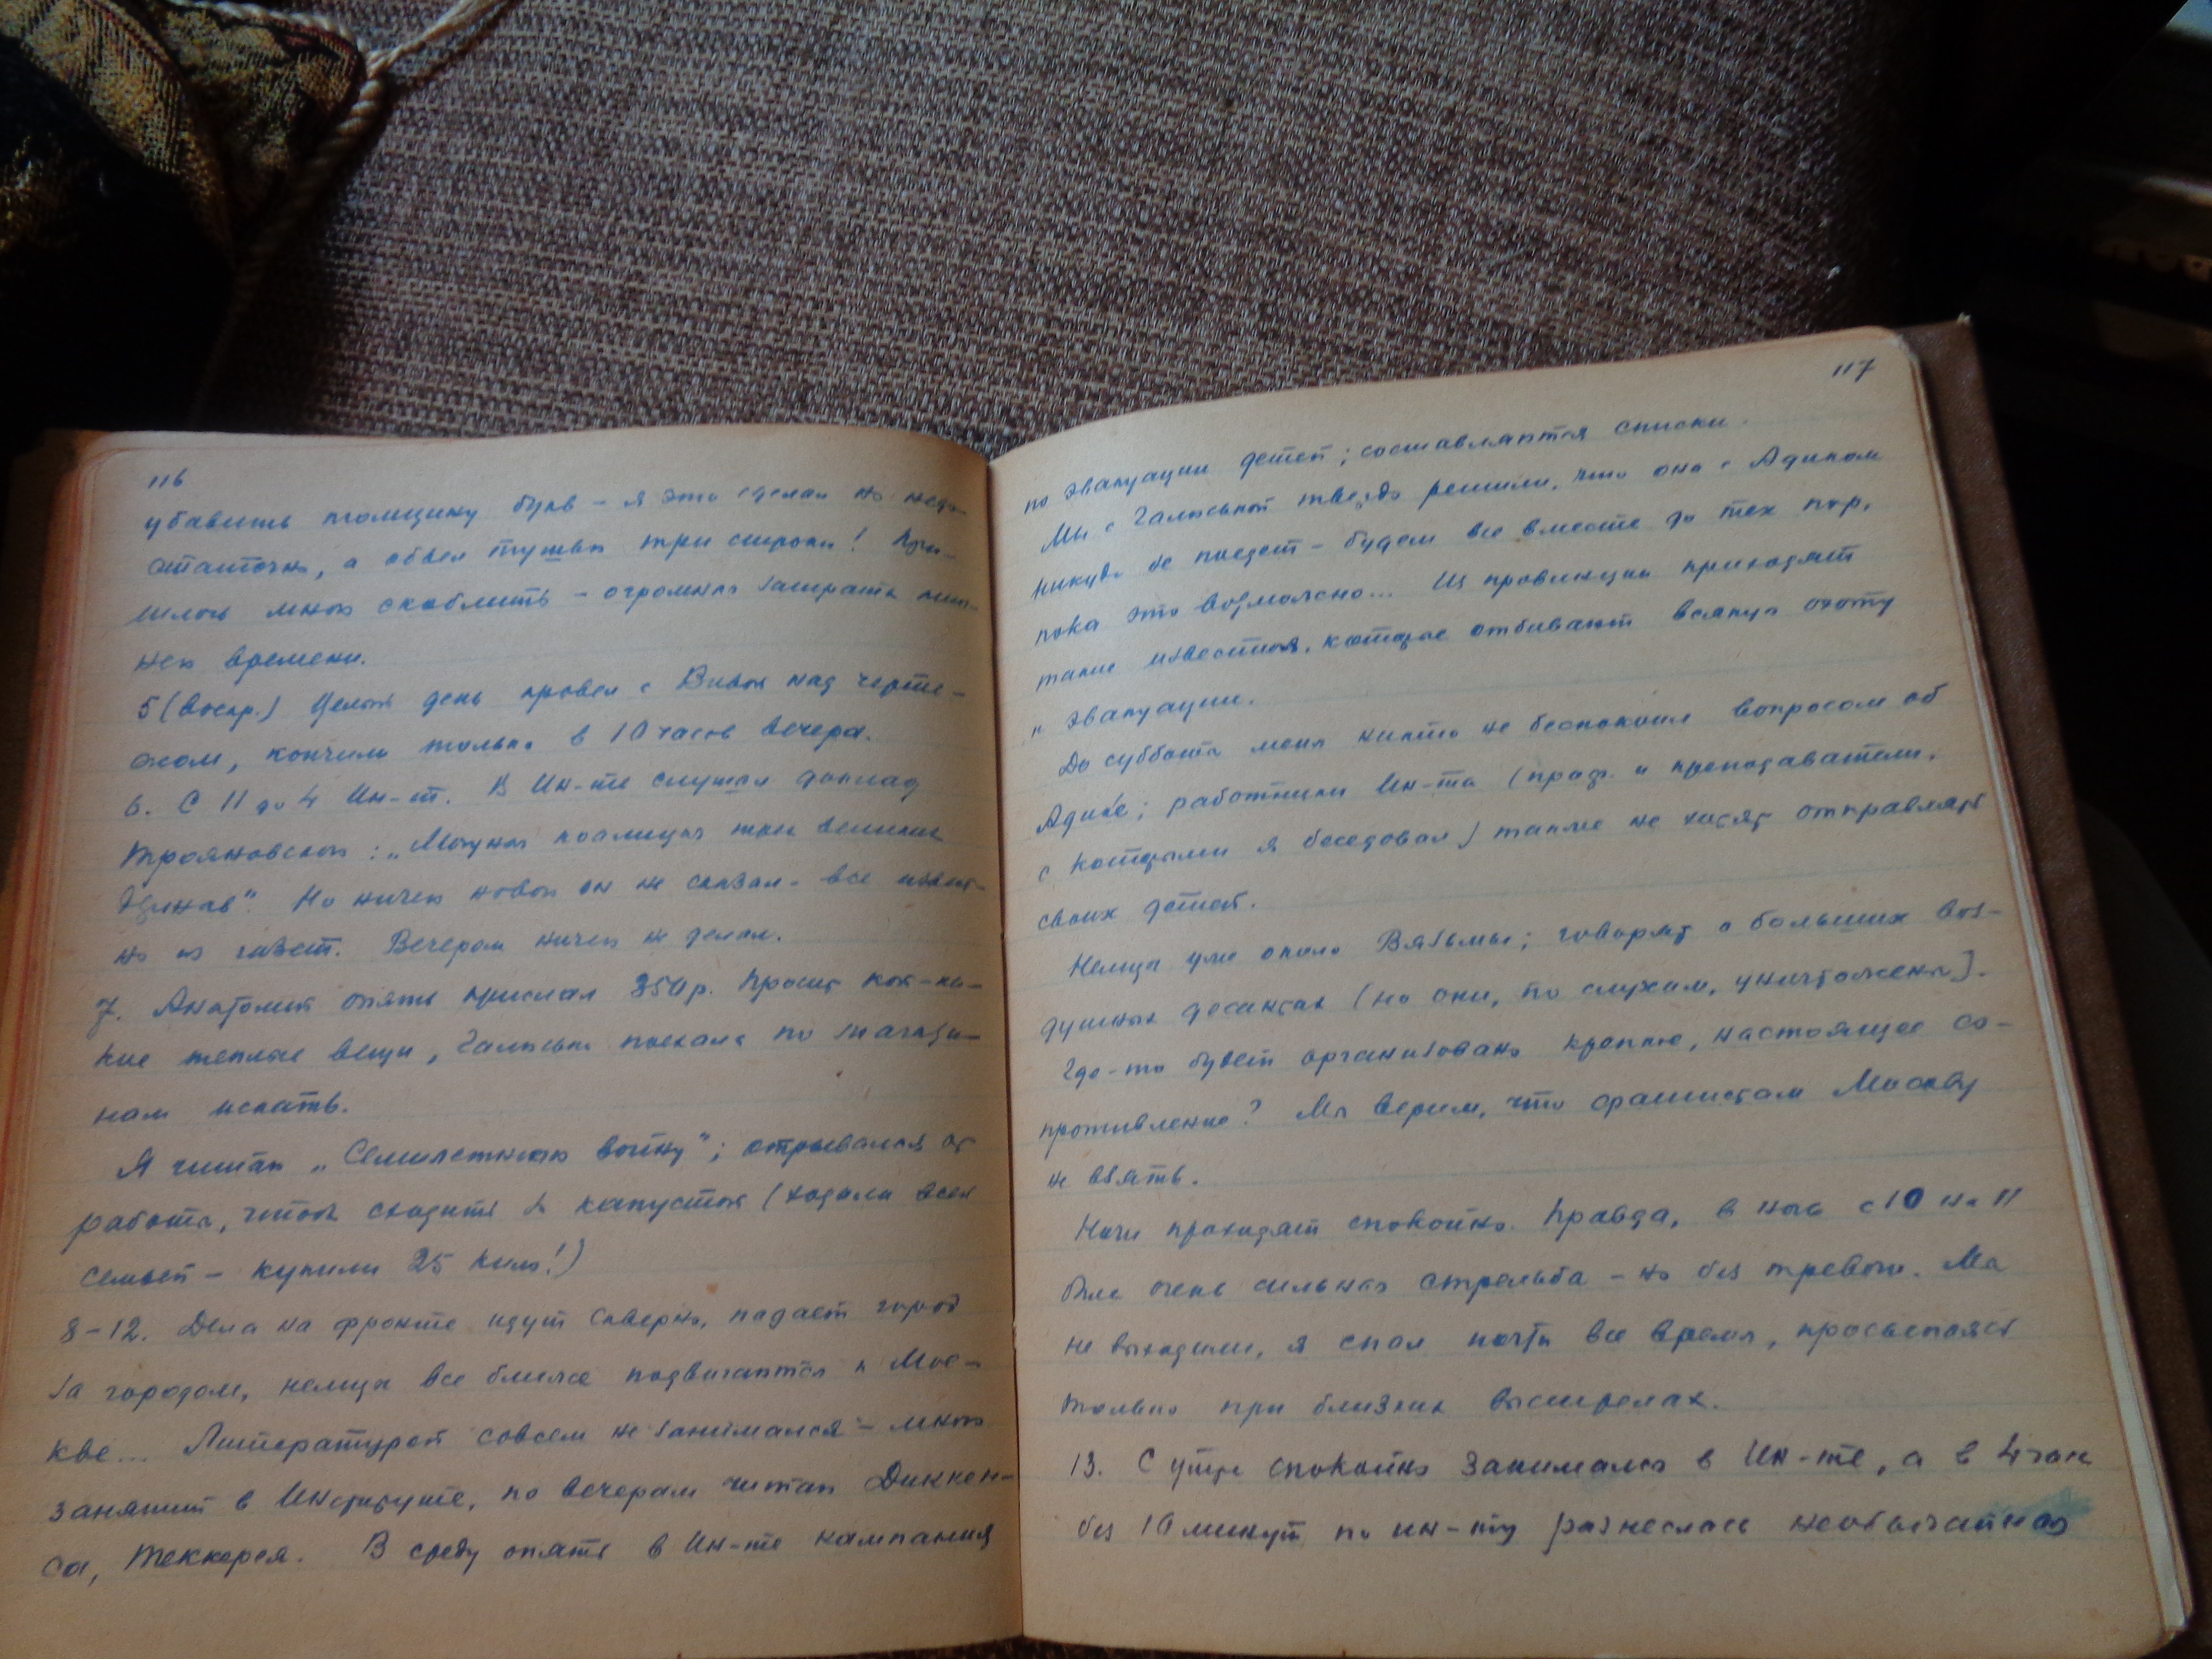 116
убавить толщину букв - я это сделал но недо-
статочно, а обвел тушью три строки! При-
шлось много скоблить - огромная затрата лиш-
него времени.
5 (воскр.) Целый день провел с Витей над черте-
жом, кончили только в 10 часов вечера.
6. С 11 до 4 Ин-т. В Ин-те слушал доклад
Трояновского: „Могучая коалиция трех великих
держав". Но ничего нового он не сказал - все извест-
но из газет. Вечером ничего не делал.
7. Анатолий опять прислал 350 р. Просит кой-ка-
кие теплые вещи, Галюська поехала по магази-
нам искать.
Я читал „Семилетнюю войну"; отрывался от
работы, чтоб сходить за капустой (ходили всей
семьей - купили 25 кило!)
8-12. Дела на фронте идут скверно, падает город
за городом, немцы все ближе подвигаются к Мос-
кве... Литературой совсем не занимался - много
занятий в Институте, по вечерам читал Диккен-
са, Теккерея. В среду опять в Ин-те кампания
117
по эвакуации детей; составляются списки.
Мы с Галюськой твердо решили, что она с Адиком
никуда не поедет - будем все вместе до тех пор,
пока это возможно... Из провинции приходят
такие известия, которые отбивают всякую охоту
к эвакуации.
До субботы меня никто не беспокоил вопросом об
Адике; работники Ин-та (проф. и преподаватели,
с которыми я беседовал) также не хотят отправлять
своих детей.
Немцы уже около Вязьмы; говорят о больших воз-
душных десантах (но они, по слухам, уничтожены).
Где-то будет организовано крепкое, настоящее со-
противление? Мы верим, что фашистам Москву
не взять.
Ночи проходят спокойно. Правда, в ночь с 10 на 11
была очень сильная стрельба - но без тревоги. Мы
не выходили, я спал почти все время, просыпаясь
только при близких выстрелах.
13. С утра спокойно занимался в Ин-те, а в 4 часа
без 10 минут по ин-ту разнеслась необычайная